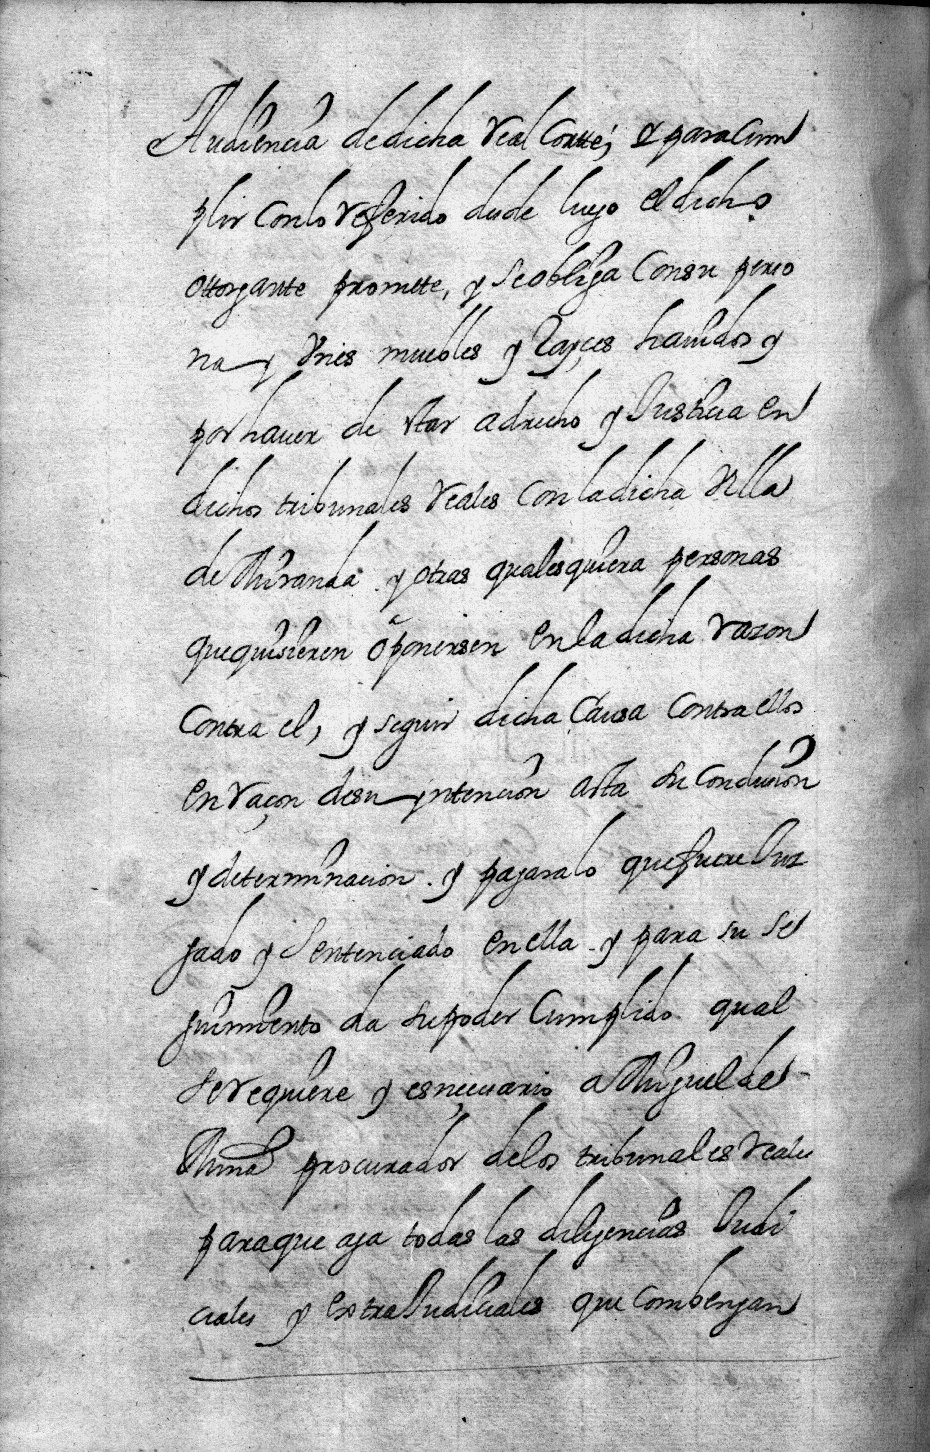 Audiencia de dicha real Corte; y para Cum
plir con lo referido desde luego el dicho
ottorgante promete, y se obliga Con su perso
na y vnes muebles y Rayces hauidos y
por hauer de estar a drecho y Justicia en
dichos tribunales reales Con la dicha Villa
de Miranda y otras qualesquiera personas
que quisieren oponersen en la dicha razon
Contra el, y seguir dicha Causa Contra ellos
en raçon de su yntencion asta su Conclusion
y determinacion. y pagara lo que fuere Juz
gado y Sentenciado en ella y para su se
guimiento da su poder Cumplido qual
Se requiere y es neçesario a Miguel de
procurador de los tribunales reales
para que aga todas las diligencias Judi
ciales y extraJudiciales que Combengan